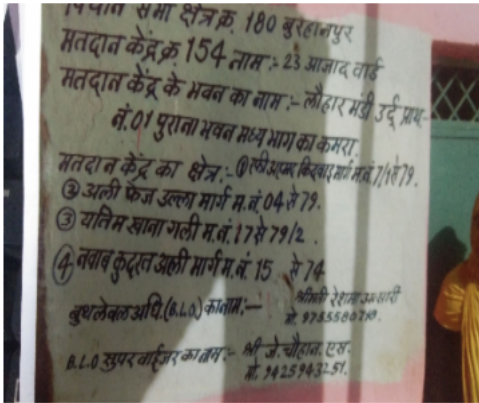 विधान सभा क्षेत्र क्र. 180 बुरहानपुर
मतदान केंद्र क्र. 154 नाम :- 23 आजाद वार्ड
मतदान केंद्र के भवन का नाम :- लौहार मंडी उर्दू प्राथ-
नं. 01 पुराना भवन मध्य भाग का कमरा
मतदान केंद्र का क्षेत्र :- ① रफी अहमद किदवाई मार्ग म.नं. 7/1 से 79.
② अली फेज उल्ला मार्ग म.नं 04 से 79.
③ यतिम खाना गली म.नं. 17 से 79/2.
④ नवाब कुदरत अली मार्ग म.नं. 15 से 74
बुथ लेवल अधि. (B.L.O.) का नाम :- श्रीमती रेशमा अन्सारी
मो. 9755580
B.L.O सुपरवाईजर का नाम :- श्री जे. चौहान. एस.
मो. 9425943251.